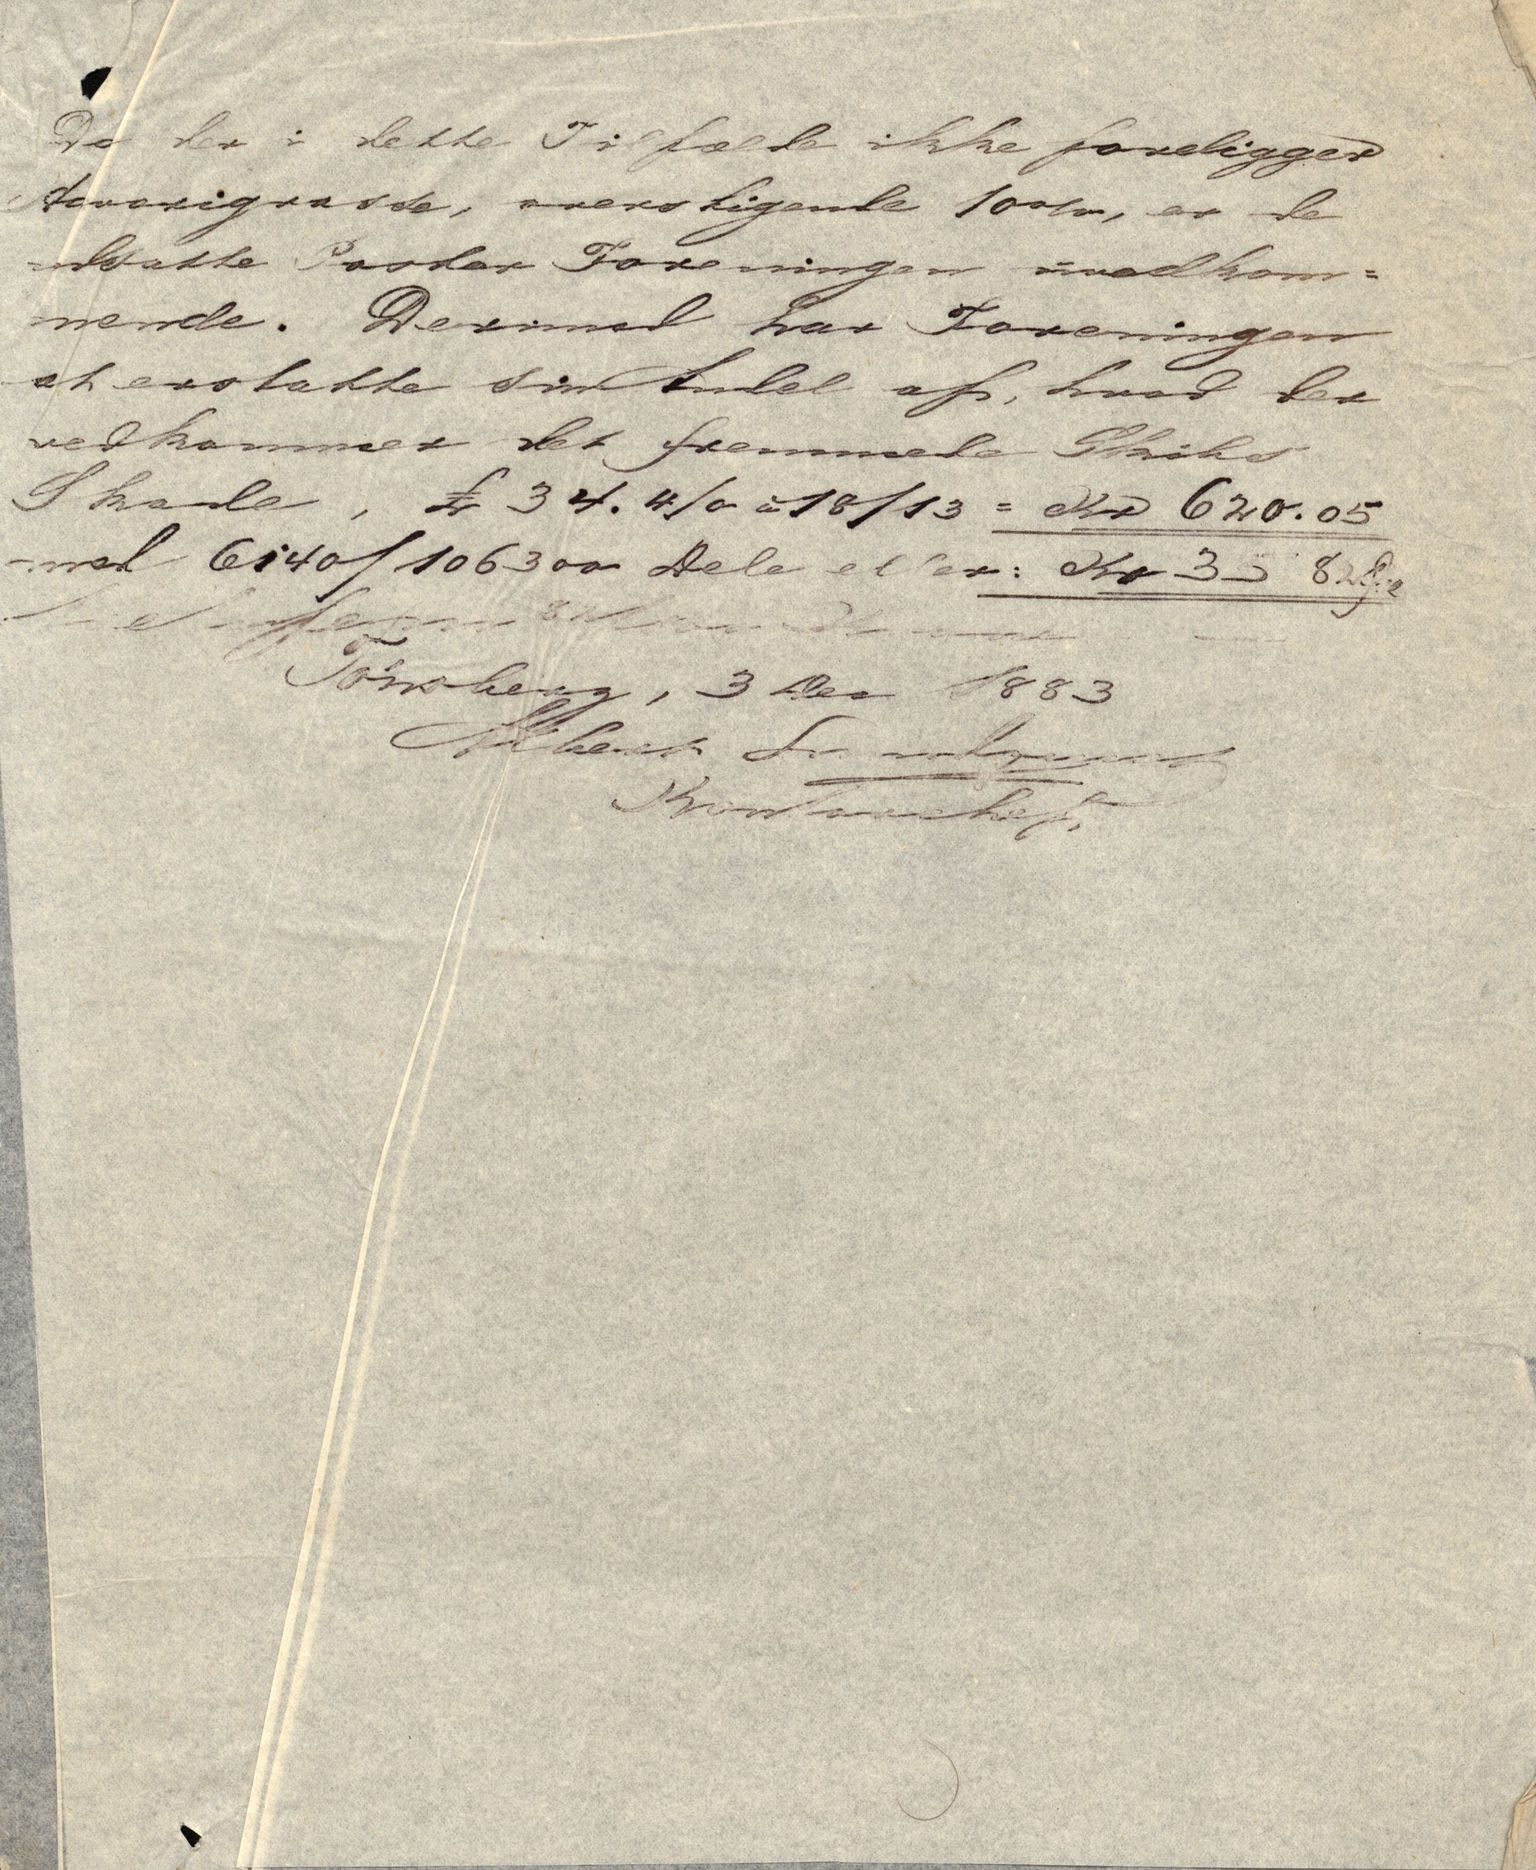 Da der i dette Tilfælde ikke foreligger
Havarigrosse, overstigende 100/m, er de
udsatte Poster Foreningen uvedkom=
mende. Derimod har Foreningen
at erstatte sin Andel af, hvad der
vedkommer det fremmede Skibs
Skade, £ 34.4/0 a 18/13 = Kr 620.05
med 6140/106300 Dele eller: Kr 35 82 Øre
Tönsberg, 3 Dec 1883
Albert
Kontorchef.